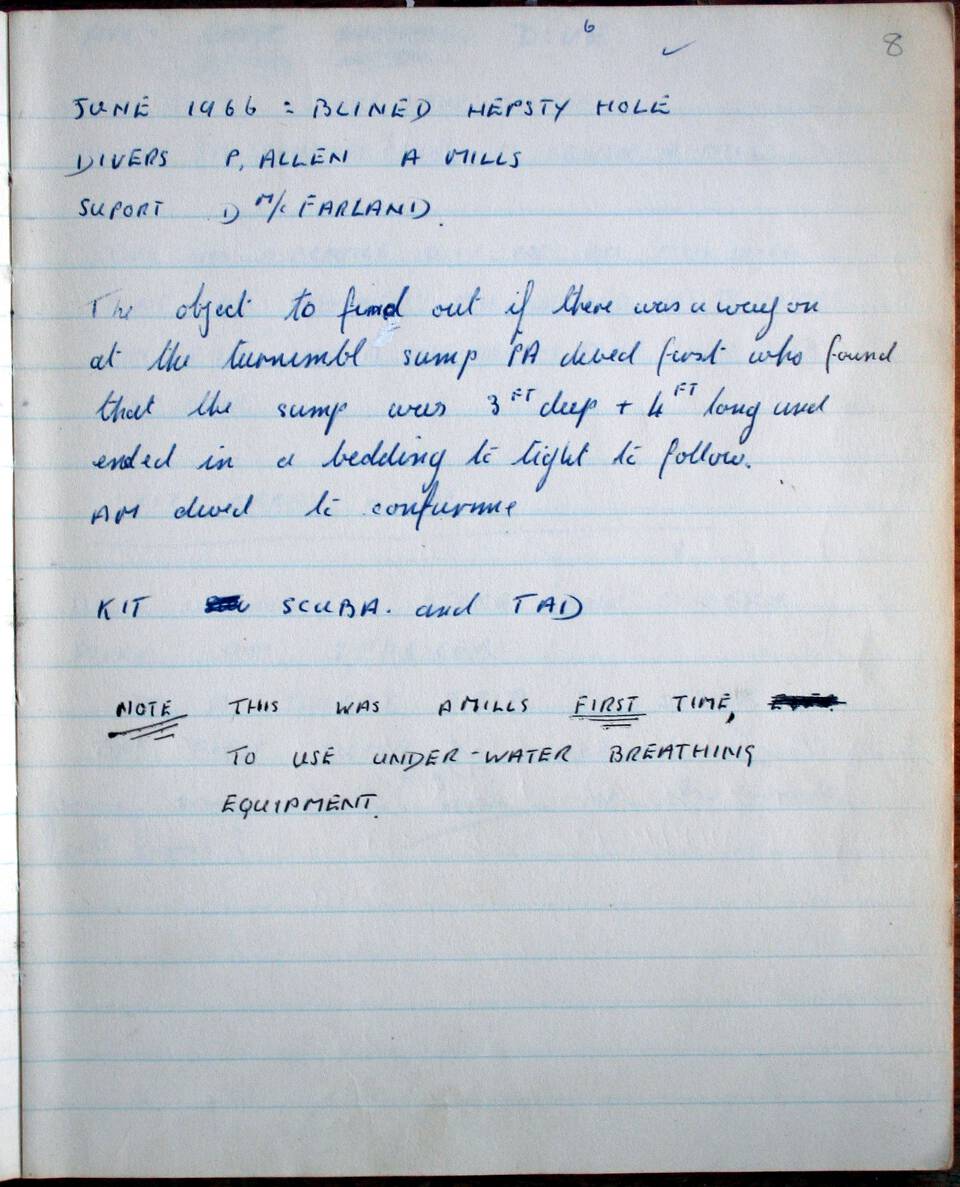 6
8
JUNE 1966 = BLINED HEPSTY HOLE
DIVERS P, ALLEN A MILLS
SUPORT D M/c FARLAND.
The object to find out if there was a way on
at the turnimbl sump PA dived first who found
that the sump was 3FT deep + 4FT long and
ended in a bedding to tight to follow.
AM dived to confurme
KIT SCUBA. and TAD
NOTE THIS WAS A MILLS FIRST TIME,
TO USE UNDER-WATER BREATHING
EQUIPMENT.